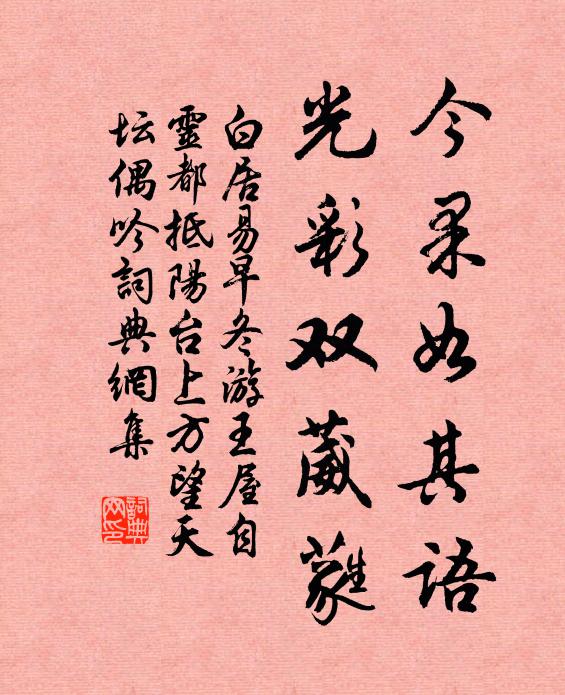 今果如其语
光彩双葳蕤
白居易早冬游王屋自
靈都抵陽台上方望天
坛偶吟詞典網集
詞典
网印